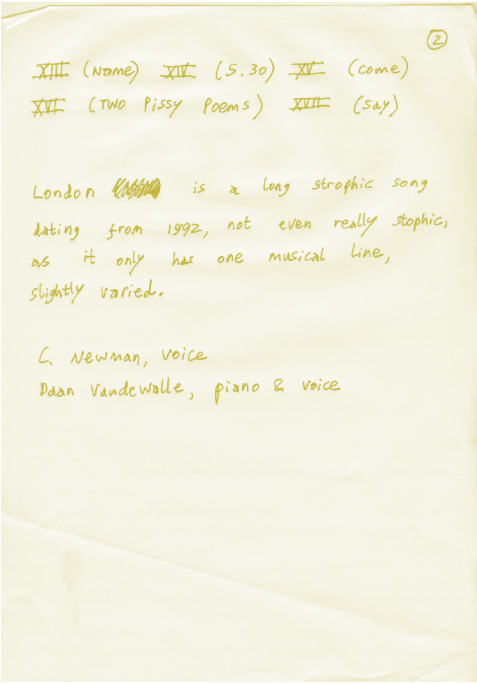 2
XIII (Name) XIV (5.30) XV (come)
XVI (Two Pissy Poems) XVII (say)
London is a long strophic song
dating from 1992, not even really stophic,
as it only has one musical line,
slightly varied.
C. Newman, voice
Daan Vandewalle, piano & voice